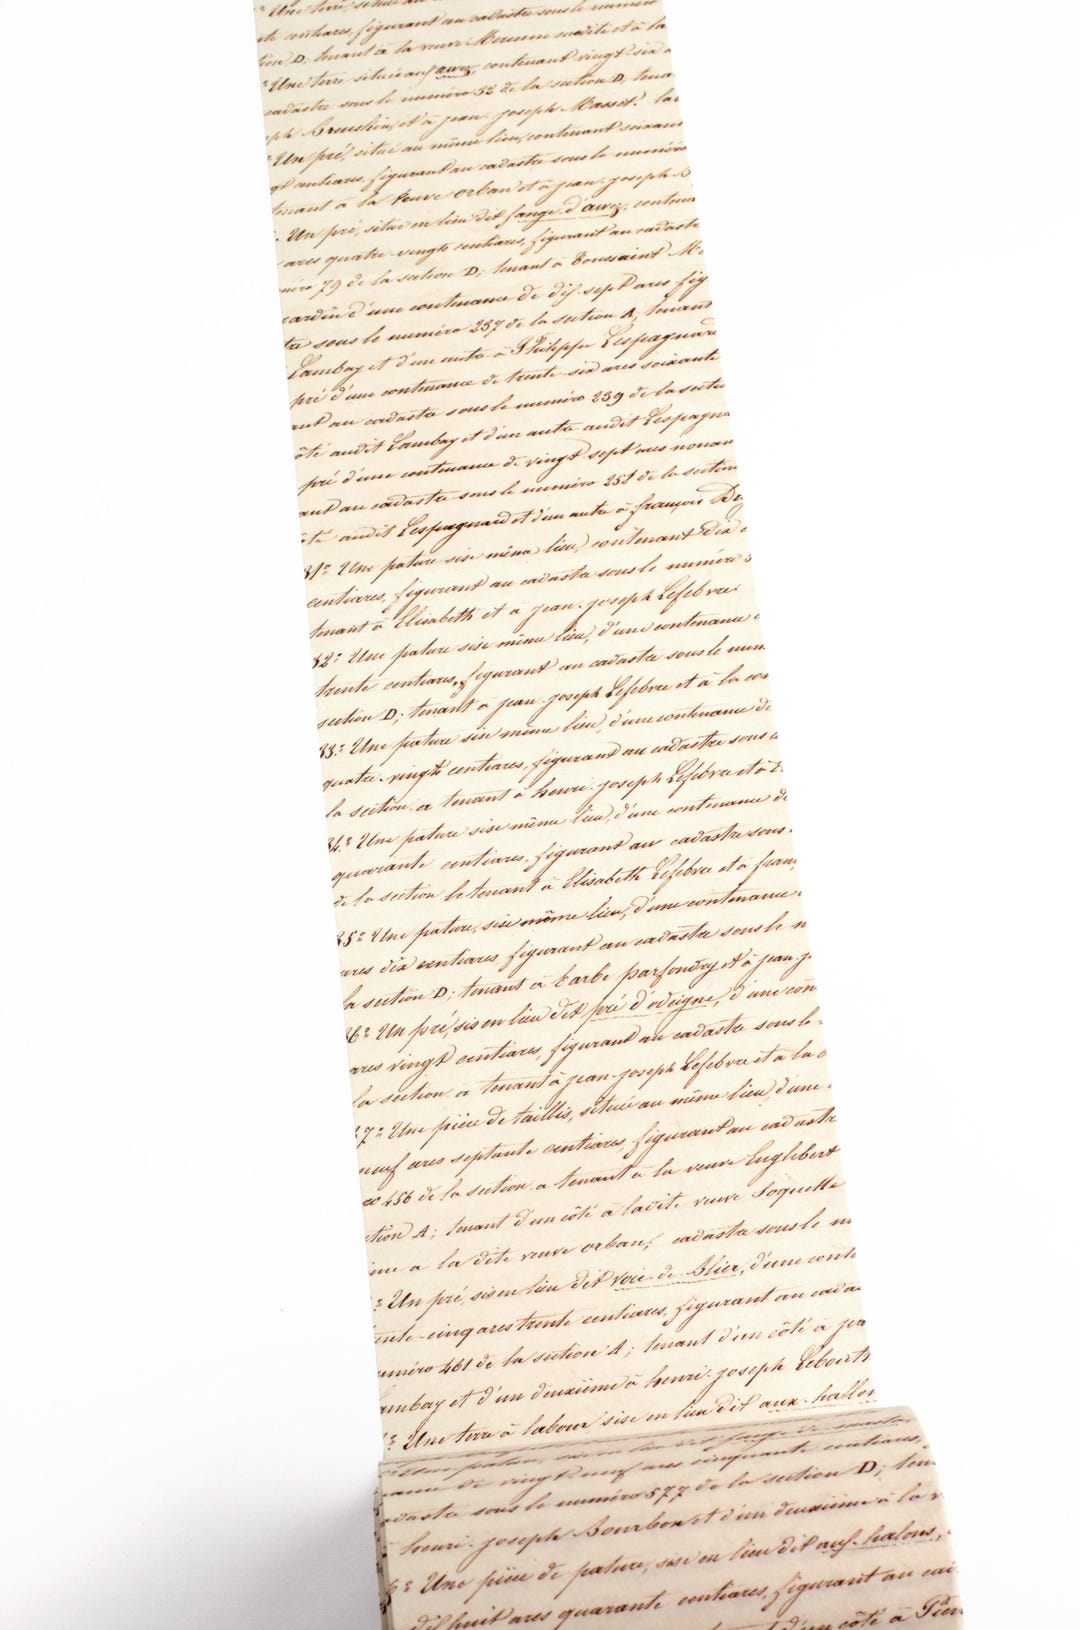 Une terre, située au
centiares, figurant au cadastre sous le numéro
tion D; tenant à la veuve Mormon susdite et à la
Une terre située auf awez, contenant vingt-six a
cadastre sous le numéro 52 de la section D; tena
eph et à jean-joseph Masset. la
Un pré, situé au même lieu, contenant soixan
gt centiares, figurant au cadastre sous le numéro
tenant à la veuve orban et à jean-joseph B
Un pré, situé en lieu dit fange d'awez, contena
ares quatre-vingts centiares, figurant au cadastre
méro 79 de la section D; tenant à Toussaint M
jardin d'une contenance de dix-sept ares fig
tre sous le numéro 237 de la section A; tenant
Lambay et d'un autre à Philippe Lespagnard
pré d'une contenance de trente-six ares soixante
ant au cadastre sous le numéro 239 de la secti
ôté audit Lambay et d'un autre audit Lespagna
pré d'une contenance de vingt-sept ares nonan
ant au cadastre sous le numéro 251 de la section
ôté audit Lespagnard et d'un autre à françois De
31º Une pature sise même lieu, contenant Dix
centiares, figurant au cadastre sous le numéro 5
tenant à Elisabeth et à jean-joseph Lefebvre.
32º Une pature sise même lieu, d'une contenance
trente centiares, figurant au cadastre sous le num
section D; tenant à jean-joseph Lefebvre et à la
33º Une pature sise même lieu, d'une contenance de
quatre-vingts centiares, figurant au cadastre sous
la section a tenant à henri-joseph Lefebvre et à
34º Une pature sise même lieu, d'une contenance de
quarante centiares, figurant au cadastre sous
de la section tenant à Elisabeth Lefebvre et à fran
35º Une pature, sise même lieu, d'une contenance
ares dix centiares figurant au cadastre sous le n
la section D; tenant à barbe parfondry et à jean-j
36º Un pré, sis en lieu dit pré d'odeigne, d'une con
ares vingt centiares, figurant au cadastre sous le
la section a tenant à jean-joseph Lefebvre et à la
7º Une pièce de taillis, située au même lieu, d'une
neuf ares septante centiares, figurant au cadastre
ro 456 de la section a tenant à la veuve Englebert
ction A; tenant d'un côté à ladite veuve Soquette
me à la dite veuve orban; cadastre sous le n
º Un pré, sis en lieu dit voie-de-blier, d'une conte
ente-cinq ares trente centiares, figurant au cada
uméro 461 de la section A; tenant d'un côté à
ambay et d'un deuxième à henri-joseph
º Une terre à labour sise en lieu dit aux-hallon
Une pature, sise en lieu dit
nance de vingt-neuf ares cinquante centiares,
adastre sous le numéro 577 de la section D; ten
henri-joseph Bourbon et d'un deuxième à la v
6º Une pièce de pature, sise en lieu dit auf-halons,
dix huit ares quarante centiares, figurant au cad
d'un côté à Pier